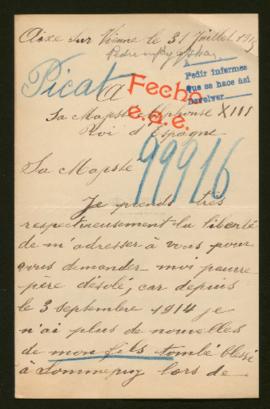 Aixe sur Vienne le 31 Juillet 1915
Picat
A
Pedir informes
que se hace así
devolver
Fecho
e.a.e.
Sa Majesté Alphonse XIII
Roi d'Espagne
99916
Sa Majesté
Je prends très
respectueusement la liberté
de m'adresser à vous pour
vous demander moi pauvre
père désolé, car depuis
le 3 septembre 1914 je
n'ai plus de nouvelles
de mon fils tombé blessé
à Sommepuy lors de